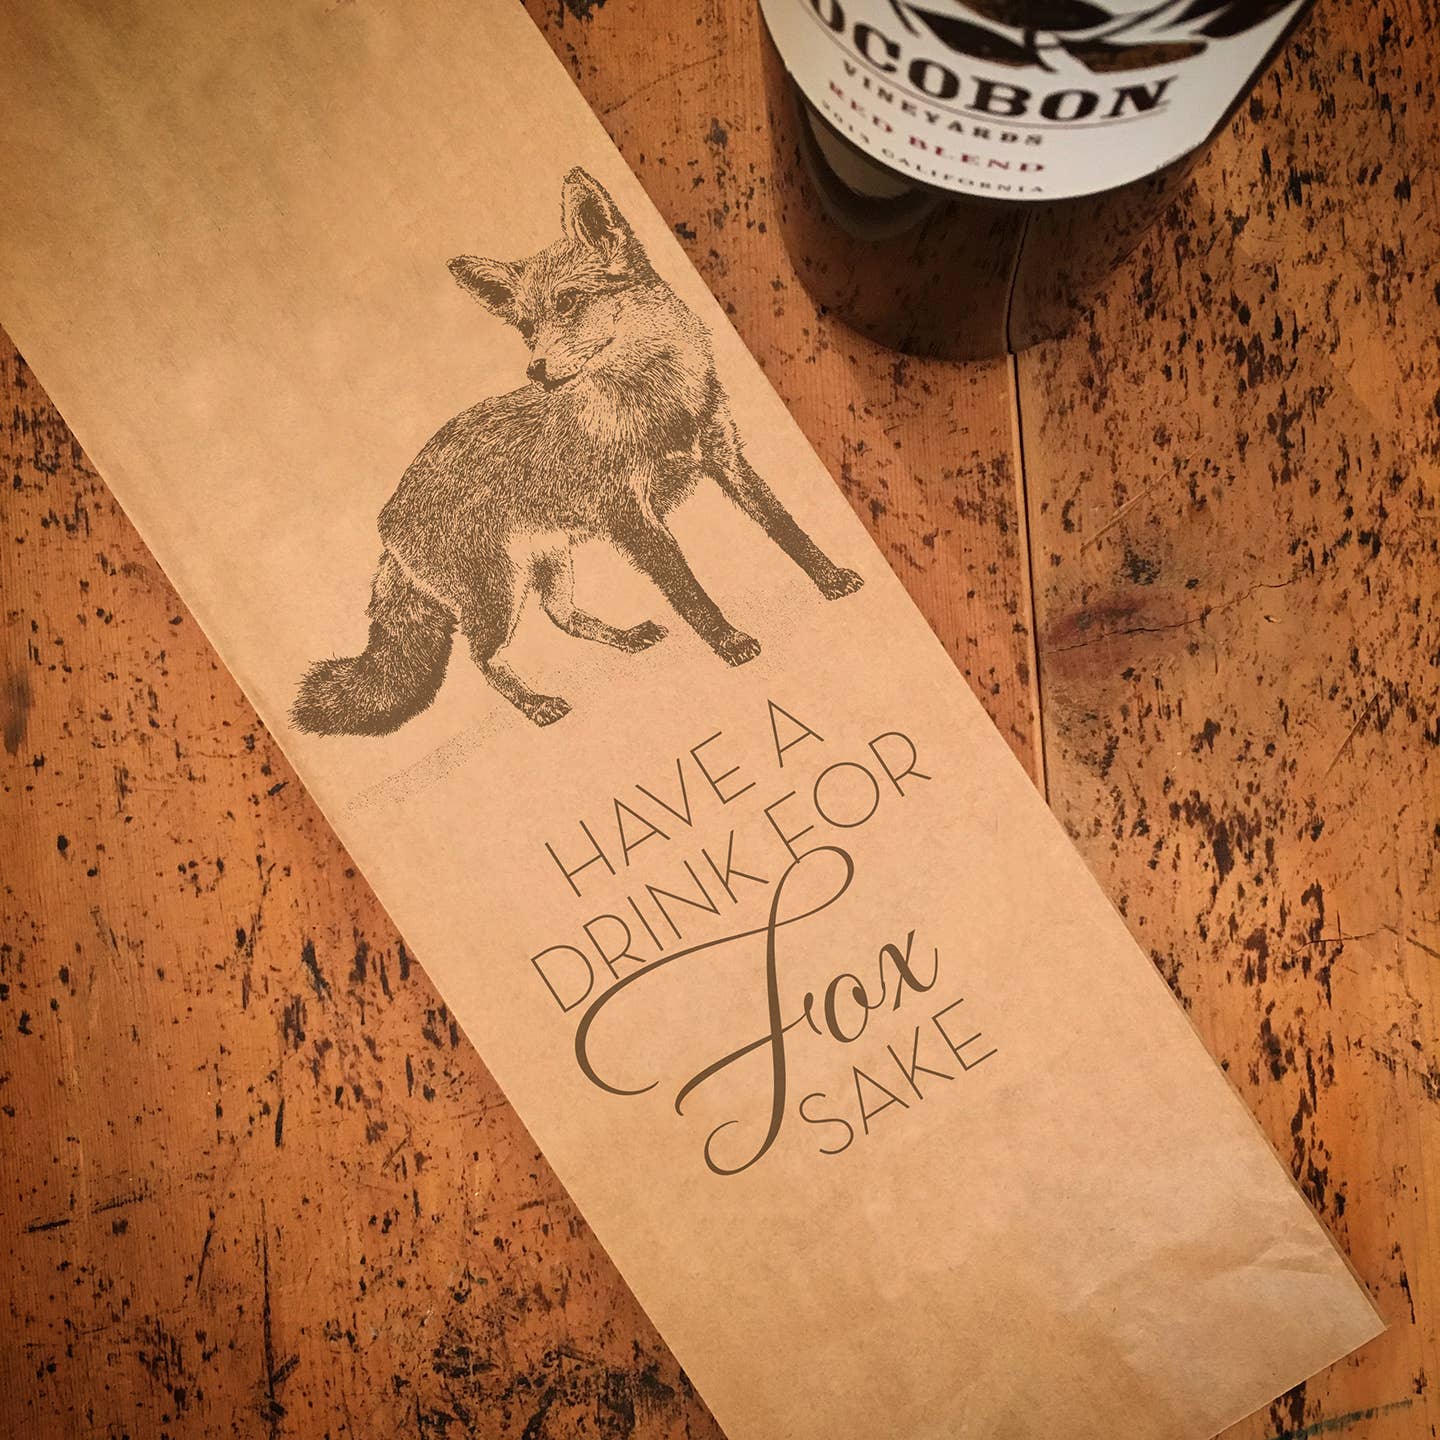 OCOBON
VINEYARDS
RED BLEND
2013 CALIFORNIA
HAVE A
DRINK FOR
Fox
SAKE